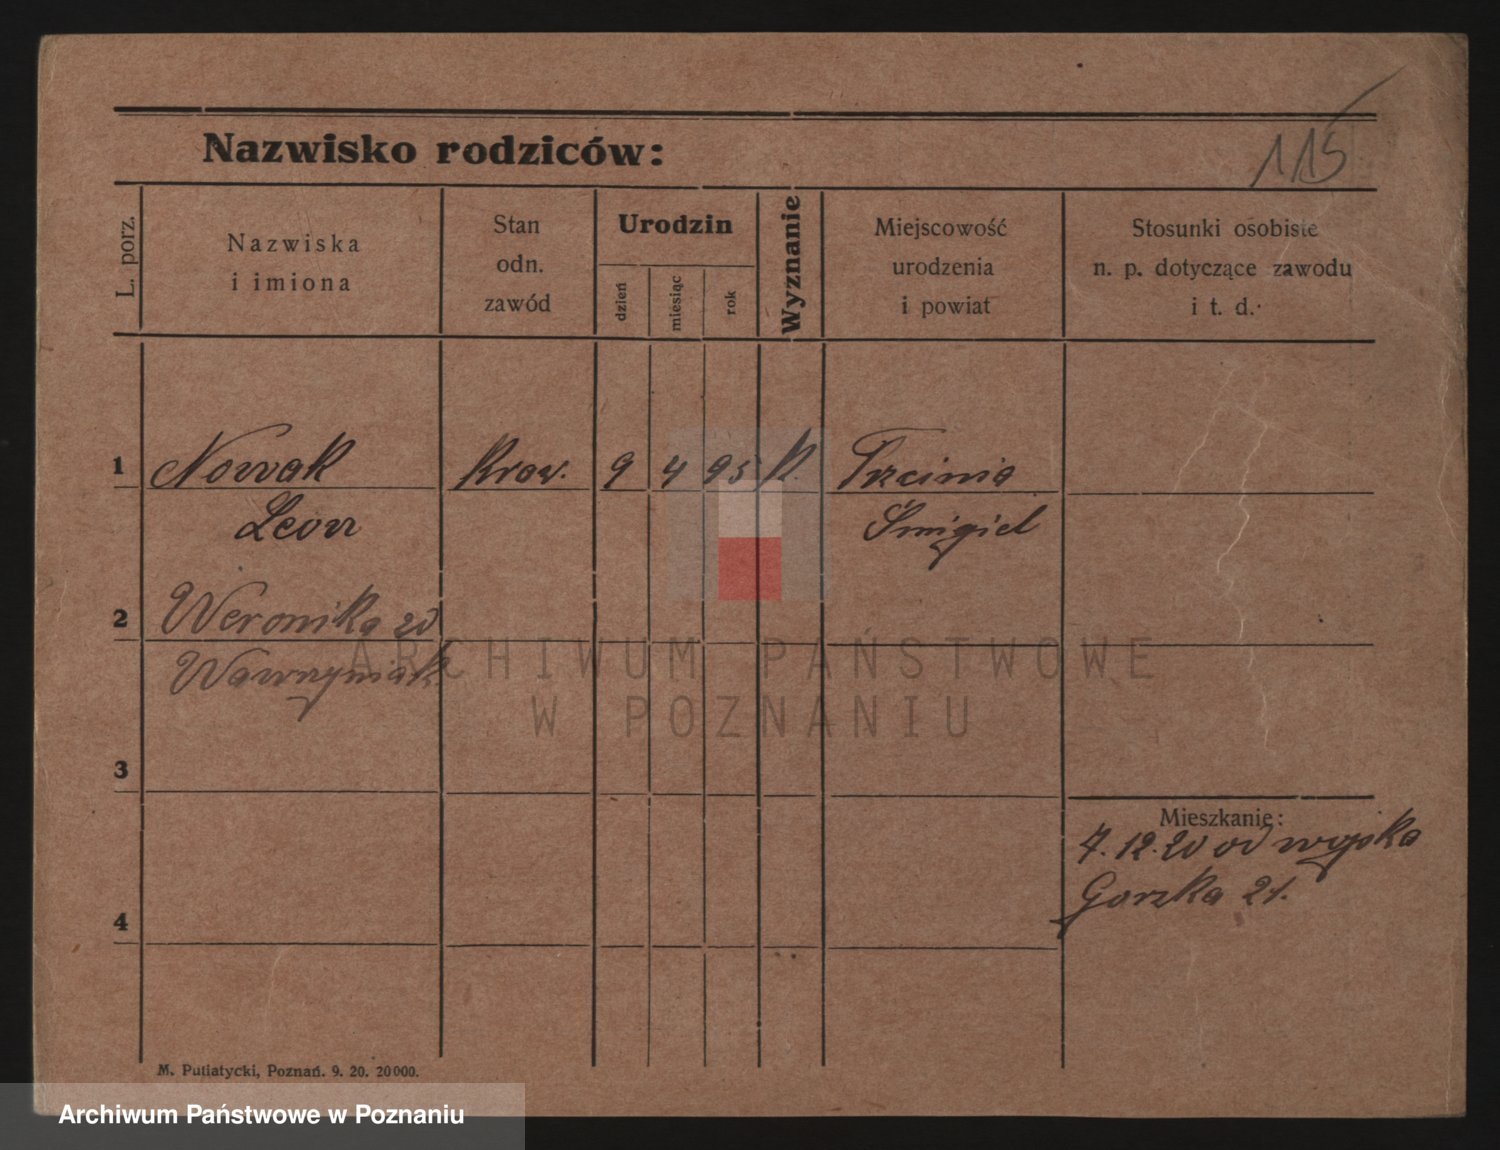 115
Nazwisko rodziców:
L. porz.
Nazwiska
i imiona
Stan
odn.
zawód
Urodzin
dzień
miesiąc
rok
Wyznanie
Miejscowość
urodzenia
i powiat
Stosunki osobiste
n. p. dotyczące zawodu
i t. d.
1
Nowak
Leon
Kraw.
9
4
95
K.
Trcinia
Śmigiel
2
Weronika zd
Wawrzyniak
ARCHIWUM PAŃSTWOWE
W POZNANIU
3
Mieszkanie:
7.12.20 od wojska
Garzka 21.
4
M. Putiatycki, Poznań. 9. 20. 20000.
Archiwum Państwowe w Poznaniu